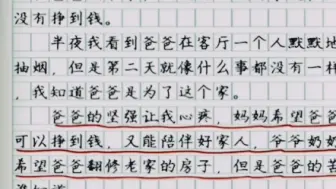 没有挣到钱。
半夜我看到爸爸在客厅一个人默默地
抽烟，但是第二天就像什么事都没有一样，
我知道爸爸是为了这个家。
爸爸的坚强让我心疼，妈妈希望爸爸
可以挣到钱，又能陪伴好家人，爷爷奶奶
希望爸爸翻修老家的房子，但是爸爸的苦